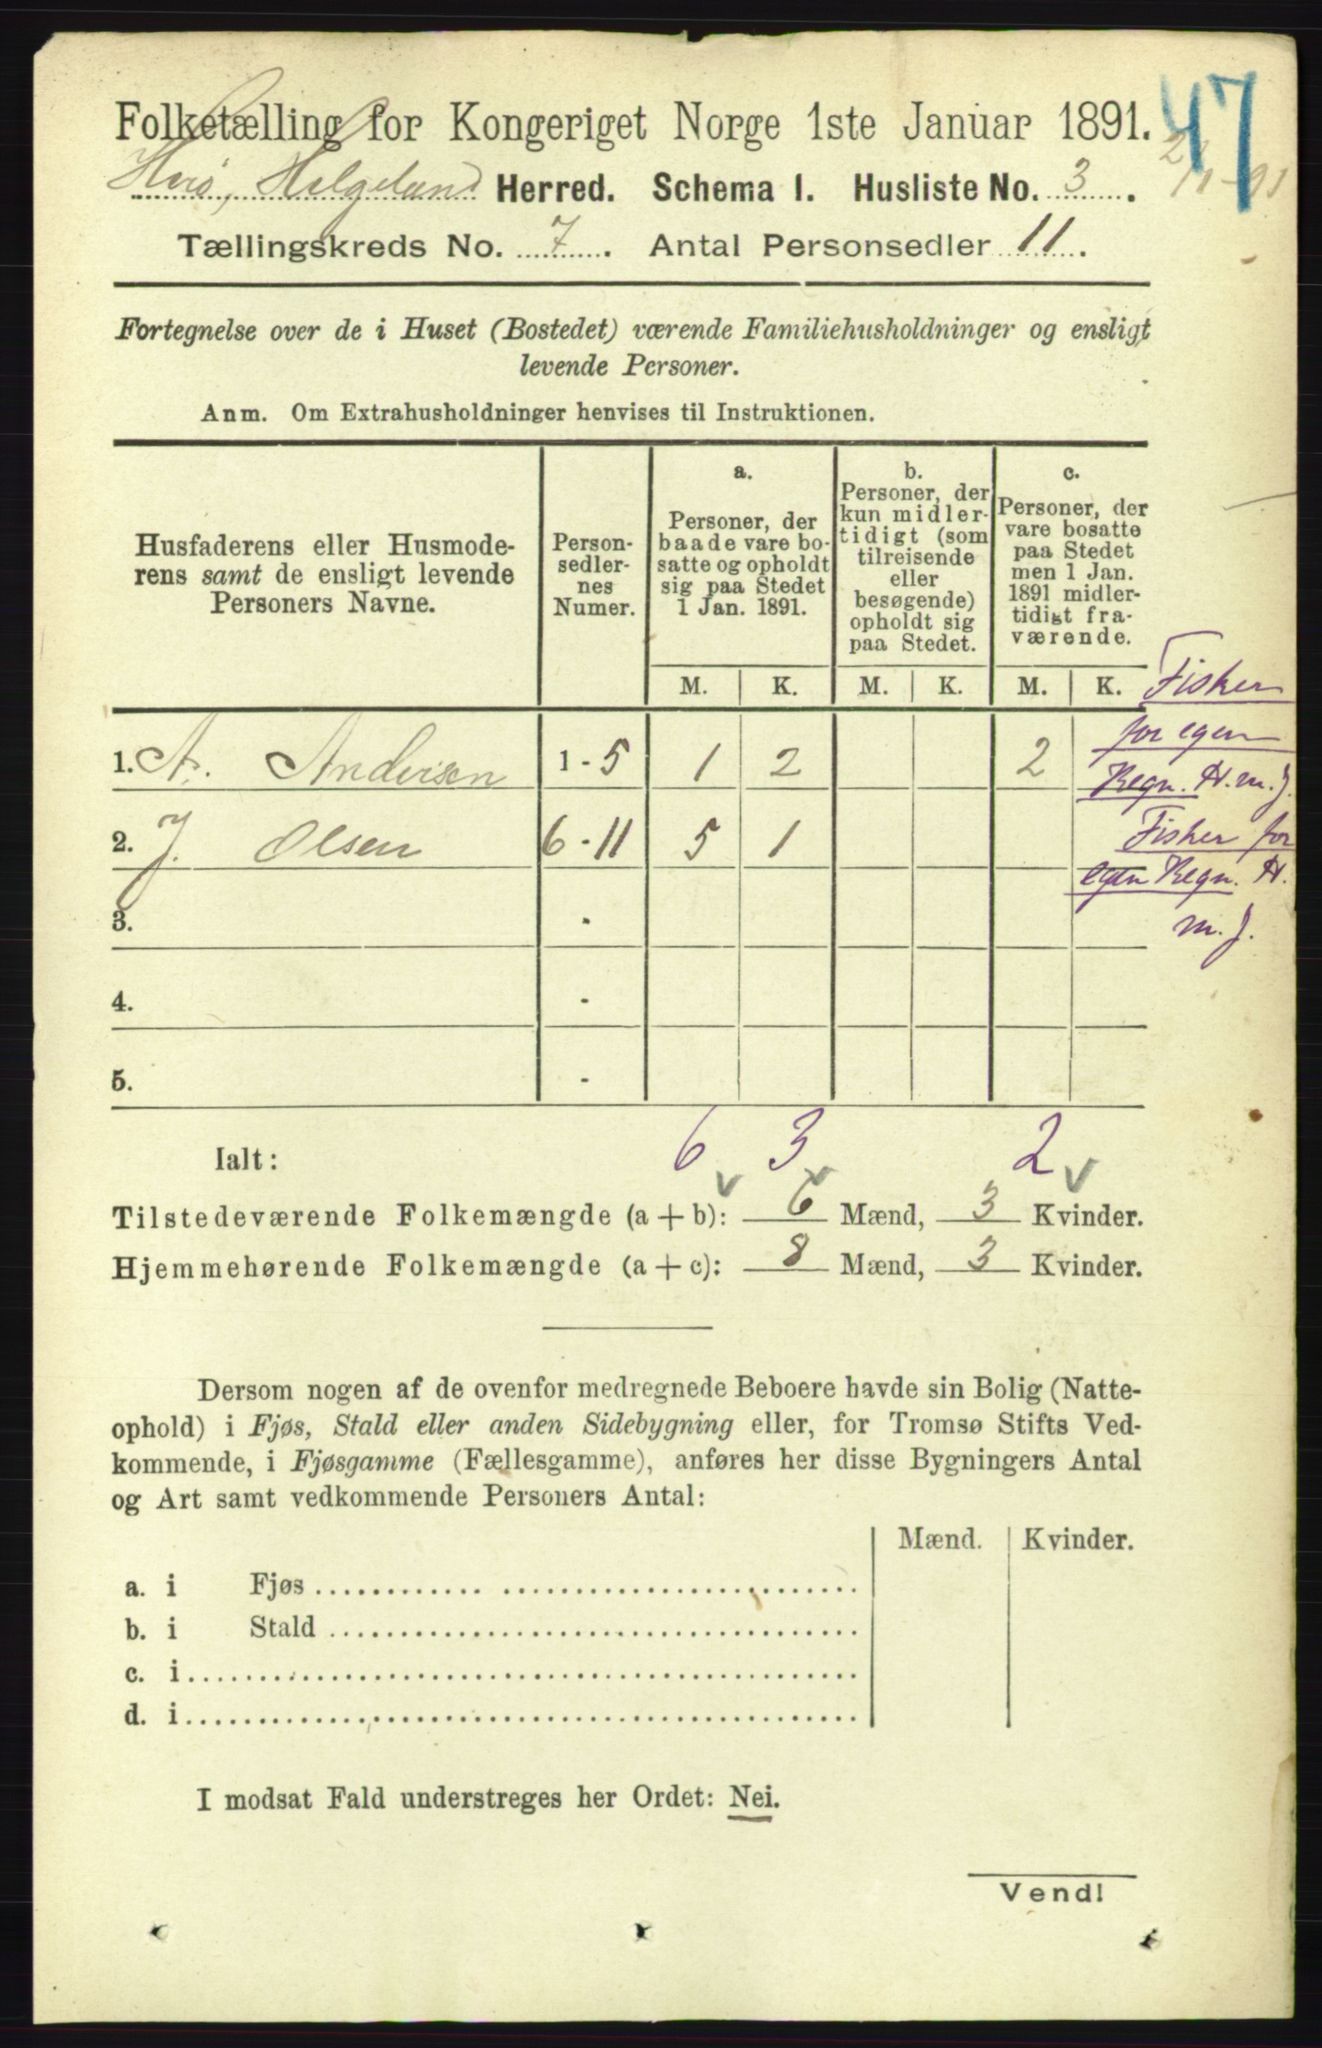 Folketælling for Kongeriget Norge 1ste Januar 1891.
47
Herø, Helgeland Herred. Schema 1. Husliste No. 3.
Tællingskreds No. 7. Antal Personsedler 11.
Fortegnelse over de i Huset (Bostedet) værende Familiehusholdninger og ensligt
levende Personer.
Anm. Om Extrahusholdninger henvises til Instruktionen.
Husfaderens eller Husmode-
rens samt de ensligt levende
Personers Navne.
Person-
sedler-
nes
Numer.
a.
Personer, der
baade vare bo-
satte og opholdt
sig paa Stedet
1 Jan. 1891.
b.
Personer, der
kun midler-
tidigt (som
tilreisende
eller
besøgende)
opholdt sig
paa Stedet.
c.
Personer, der
vare bosatte
paa Stedet
men 1 Jan.
1891 midler-
tidigt fra-
værende.
M. K. M. K. M. K.
Fisker
for egen
Regn. H. m. J.
1. A. Andersen 1 - 5 1 2 2
2. J. Olsen 6 - 11 5 1
Fisker for
egen Regn. H.
m. J.
3. -
4. -
5. -
Ialt: 6 3 2
Tilstedeværende Folkemængde (a + b): 6 Mænd, 3 Kvinder.
Hjemmehørende Folkemængde (a + c): 8 Mænd, 3 Kvinder.
Dersom nogen af de ovenfor medregnede Beboere havde sin Bolig (Natte-
ophold) i Fjøs, Stald eller anden Sidebygning eller, for Tromsø Stifts Ved-
kommende, i Fjøsgamme (Fællesgamme), anføres her disse Bygningers Antal
og Art samt vedkommende Personers Antal:
Mænd. Kvinder.
a. i Fjøs
b. i Stald
c. i
d. i
I modsat Fald understreges her Ordet: Nei.
Vend!